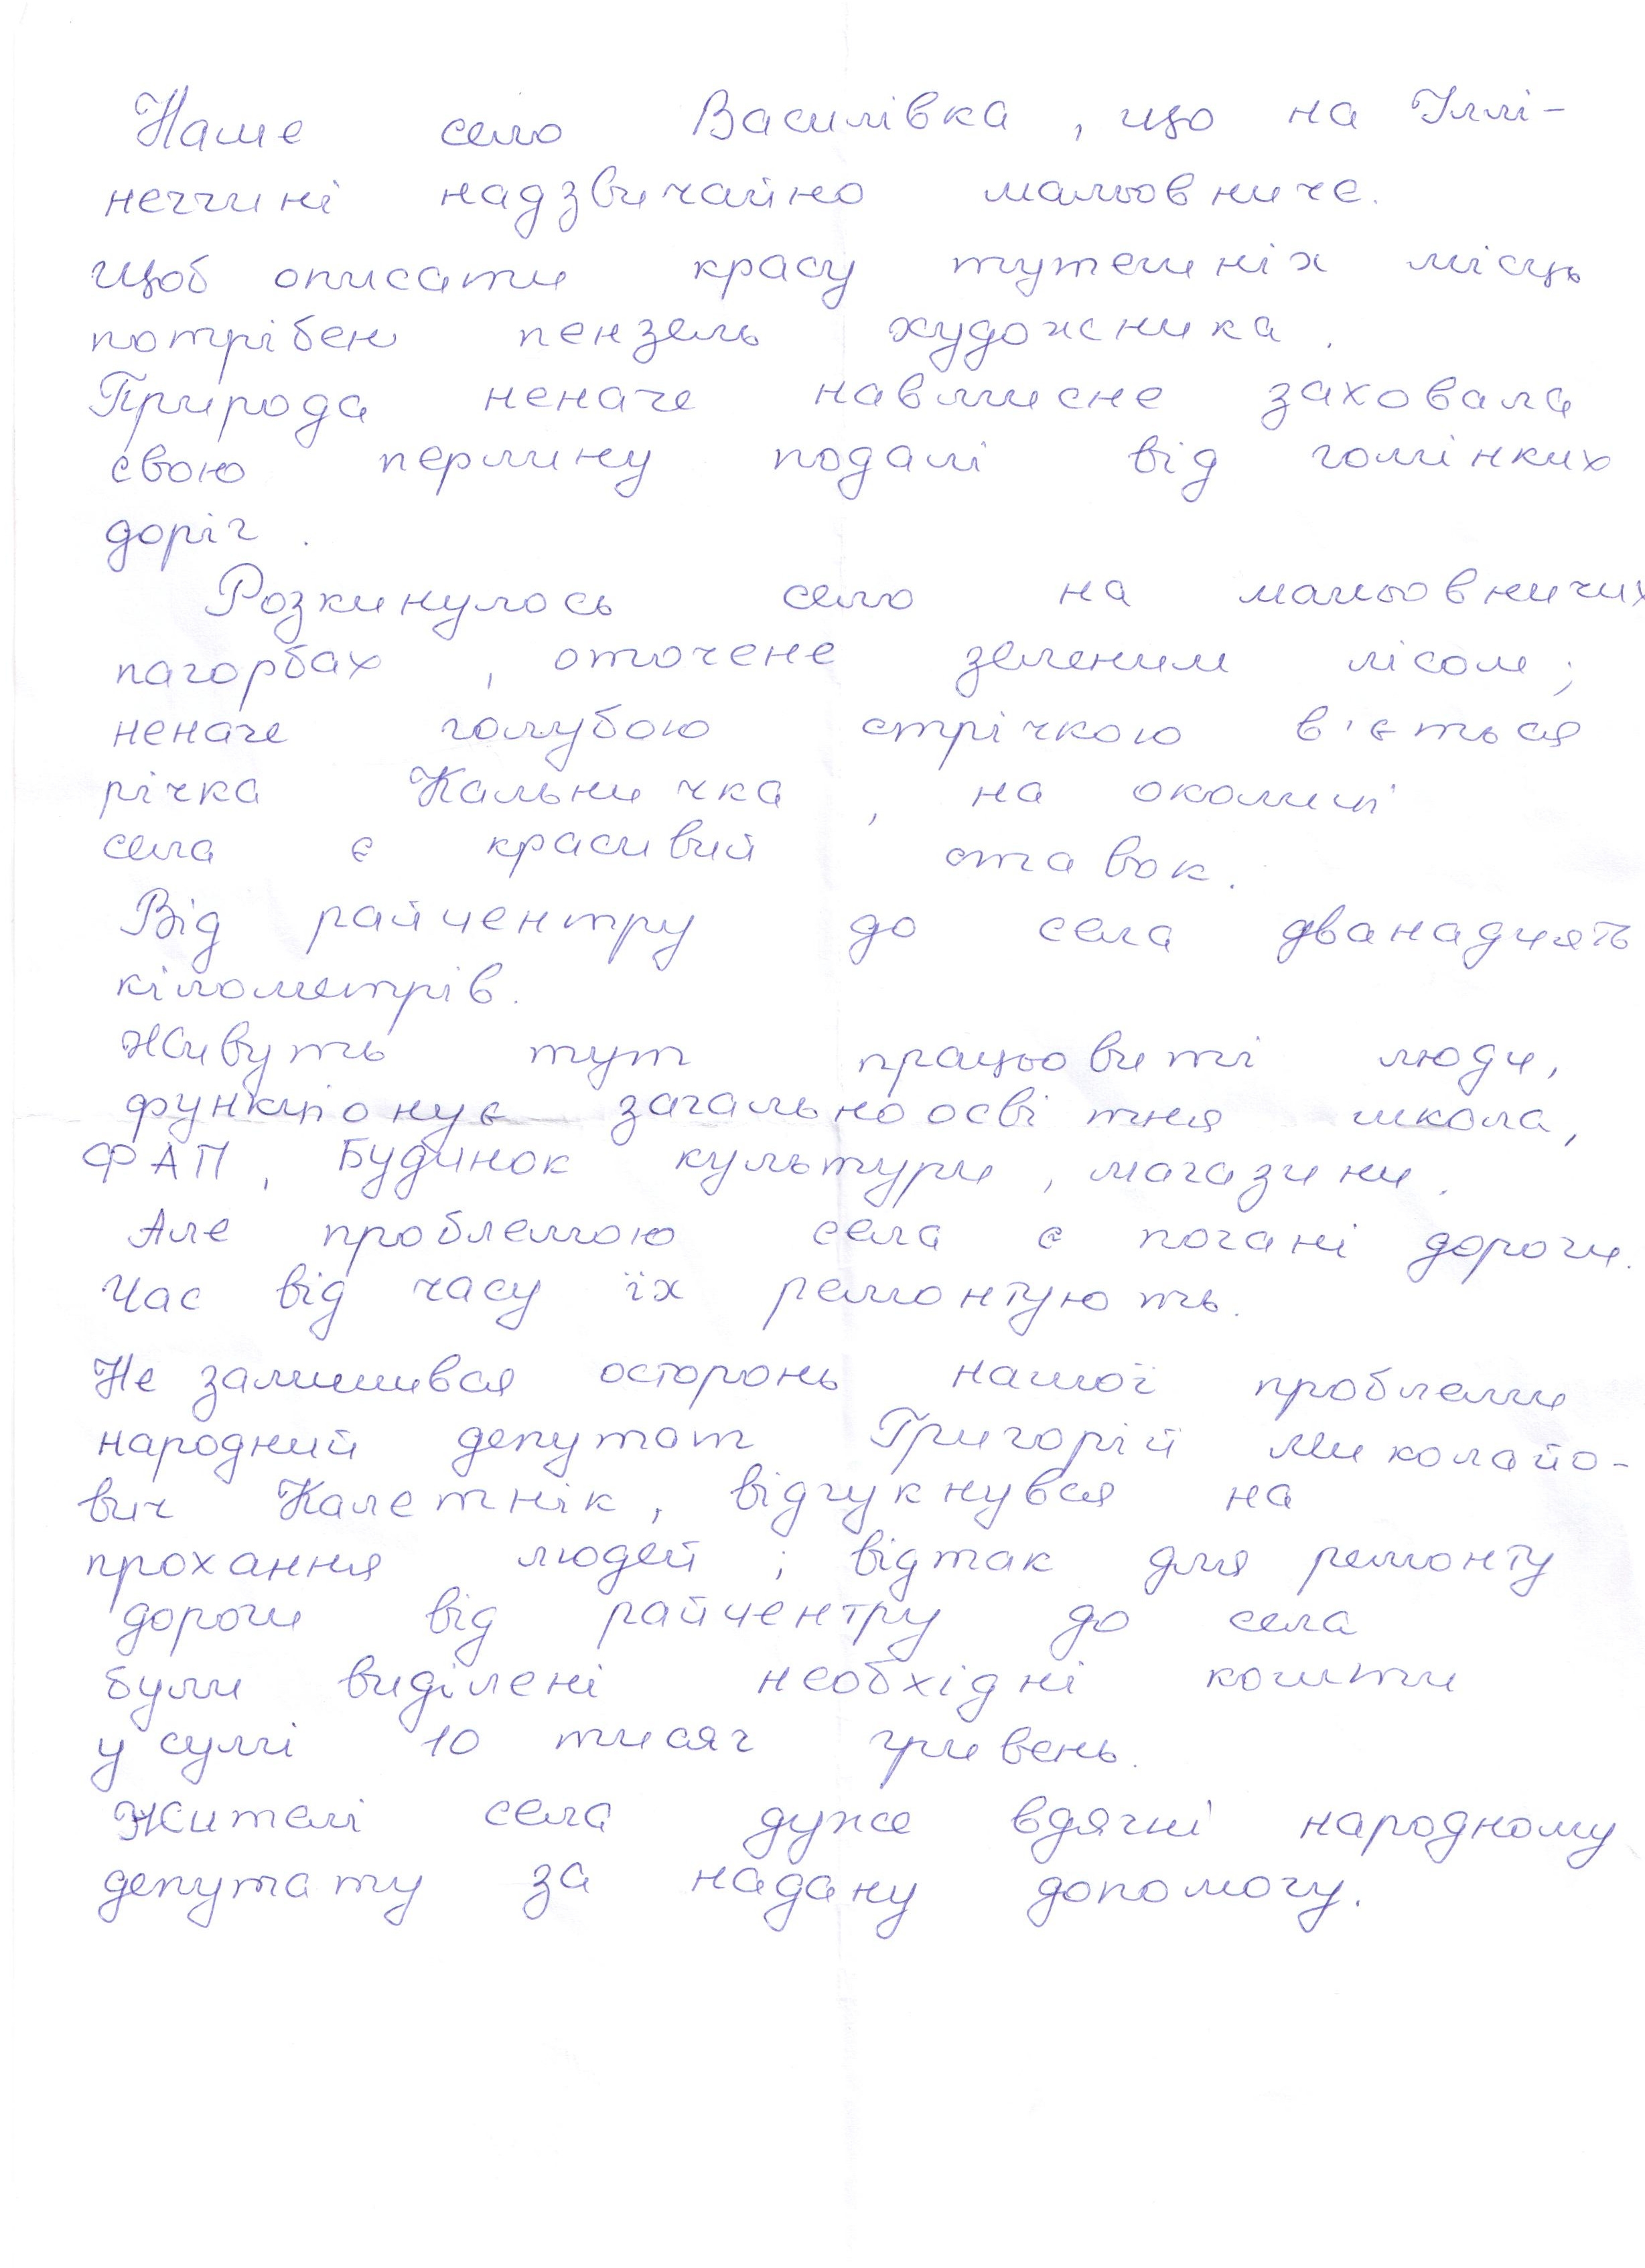 Наше село Василівка, що на Іллі-
неччині надзвичайно мальовниче.
Щоб описати красу тутешніх місць
потрібен пензель художника.
Природа неначе навмисне заховала
свою перлину подалі від гомінких
доріг.
Розкинулось село на мальовничих
пагорбах, оточене зеленим лісом;
неначе голубою стрічкою в'ється
річка Кальничка, на околиці
села є красивий ставок.
Від райцентру до села дванадцять
кілометрів.
Живуть тут працьовиті люди,
функціонує загальноосвітня школа,
ФАП, Будинок культури, магазини.
Але проблемою села є погані дороги.
Час від часу їх ремонтують.
Не залишився осторонь нашої проблеми
народний депутат Григорій Миколайо-
вич Калетнік, відгукнувся на
прохання людей; відтак для ремонту
дороги від райцентру до села
були виділені необхідні кошти
у сумі 10 тисяч гривень.
Жителі села дуже вдячні народному
депутату за надану допомогу.